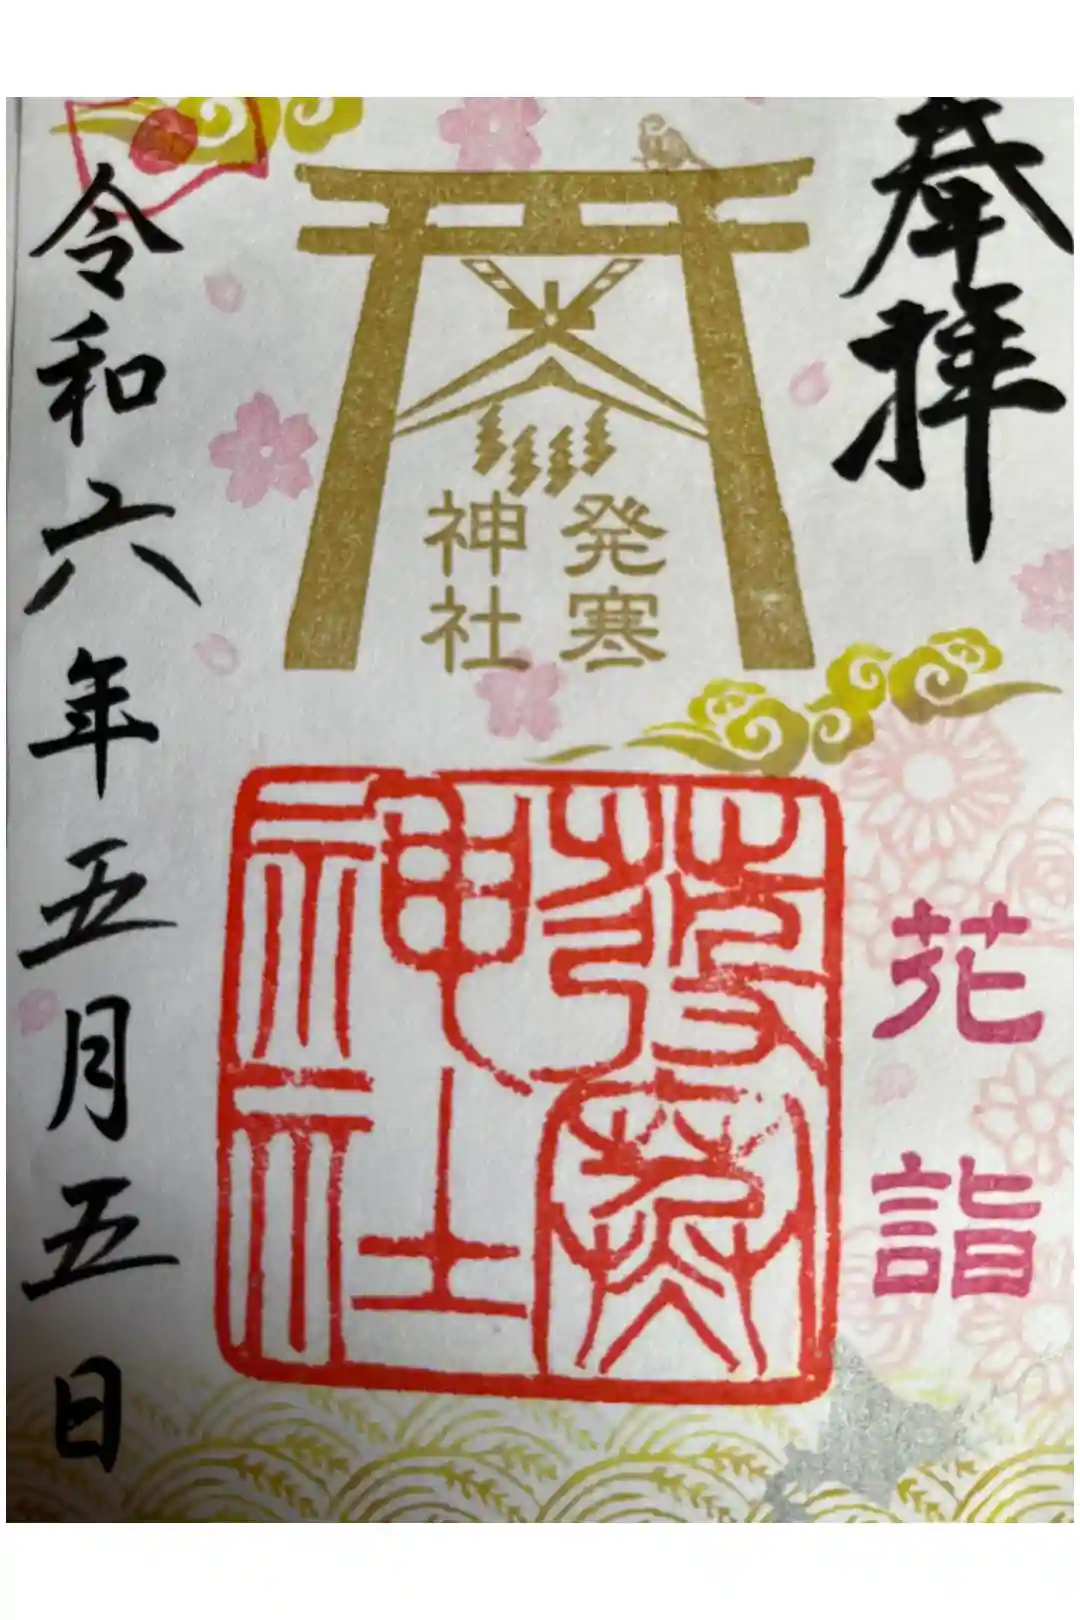 奉拝
発寒
神社
花詣
發寒
神社
令和六年五月五日